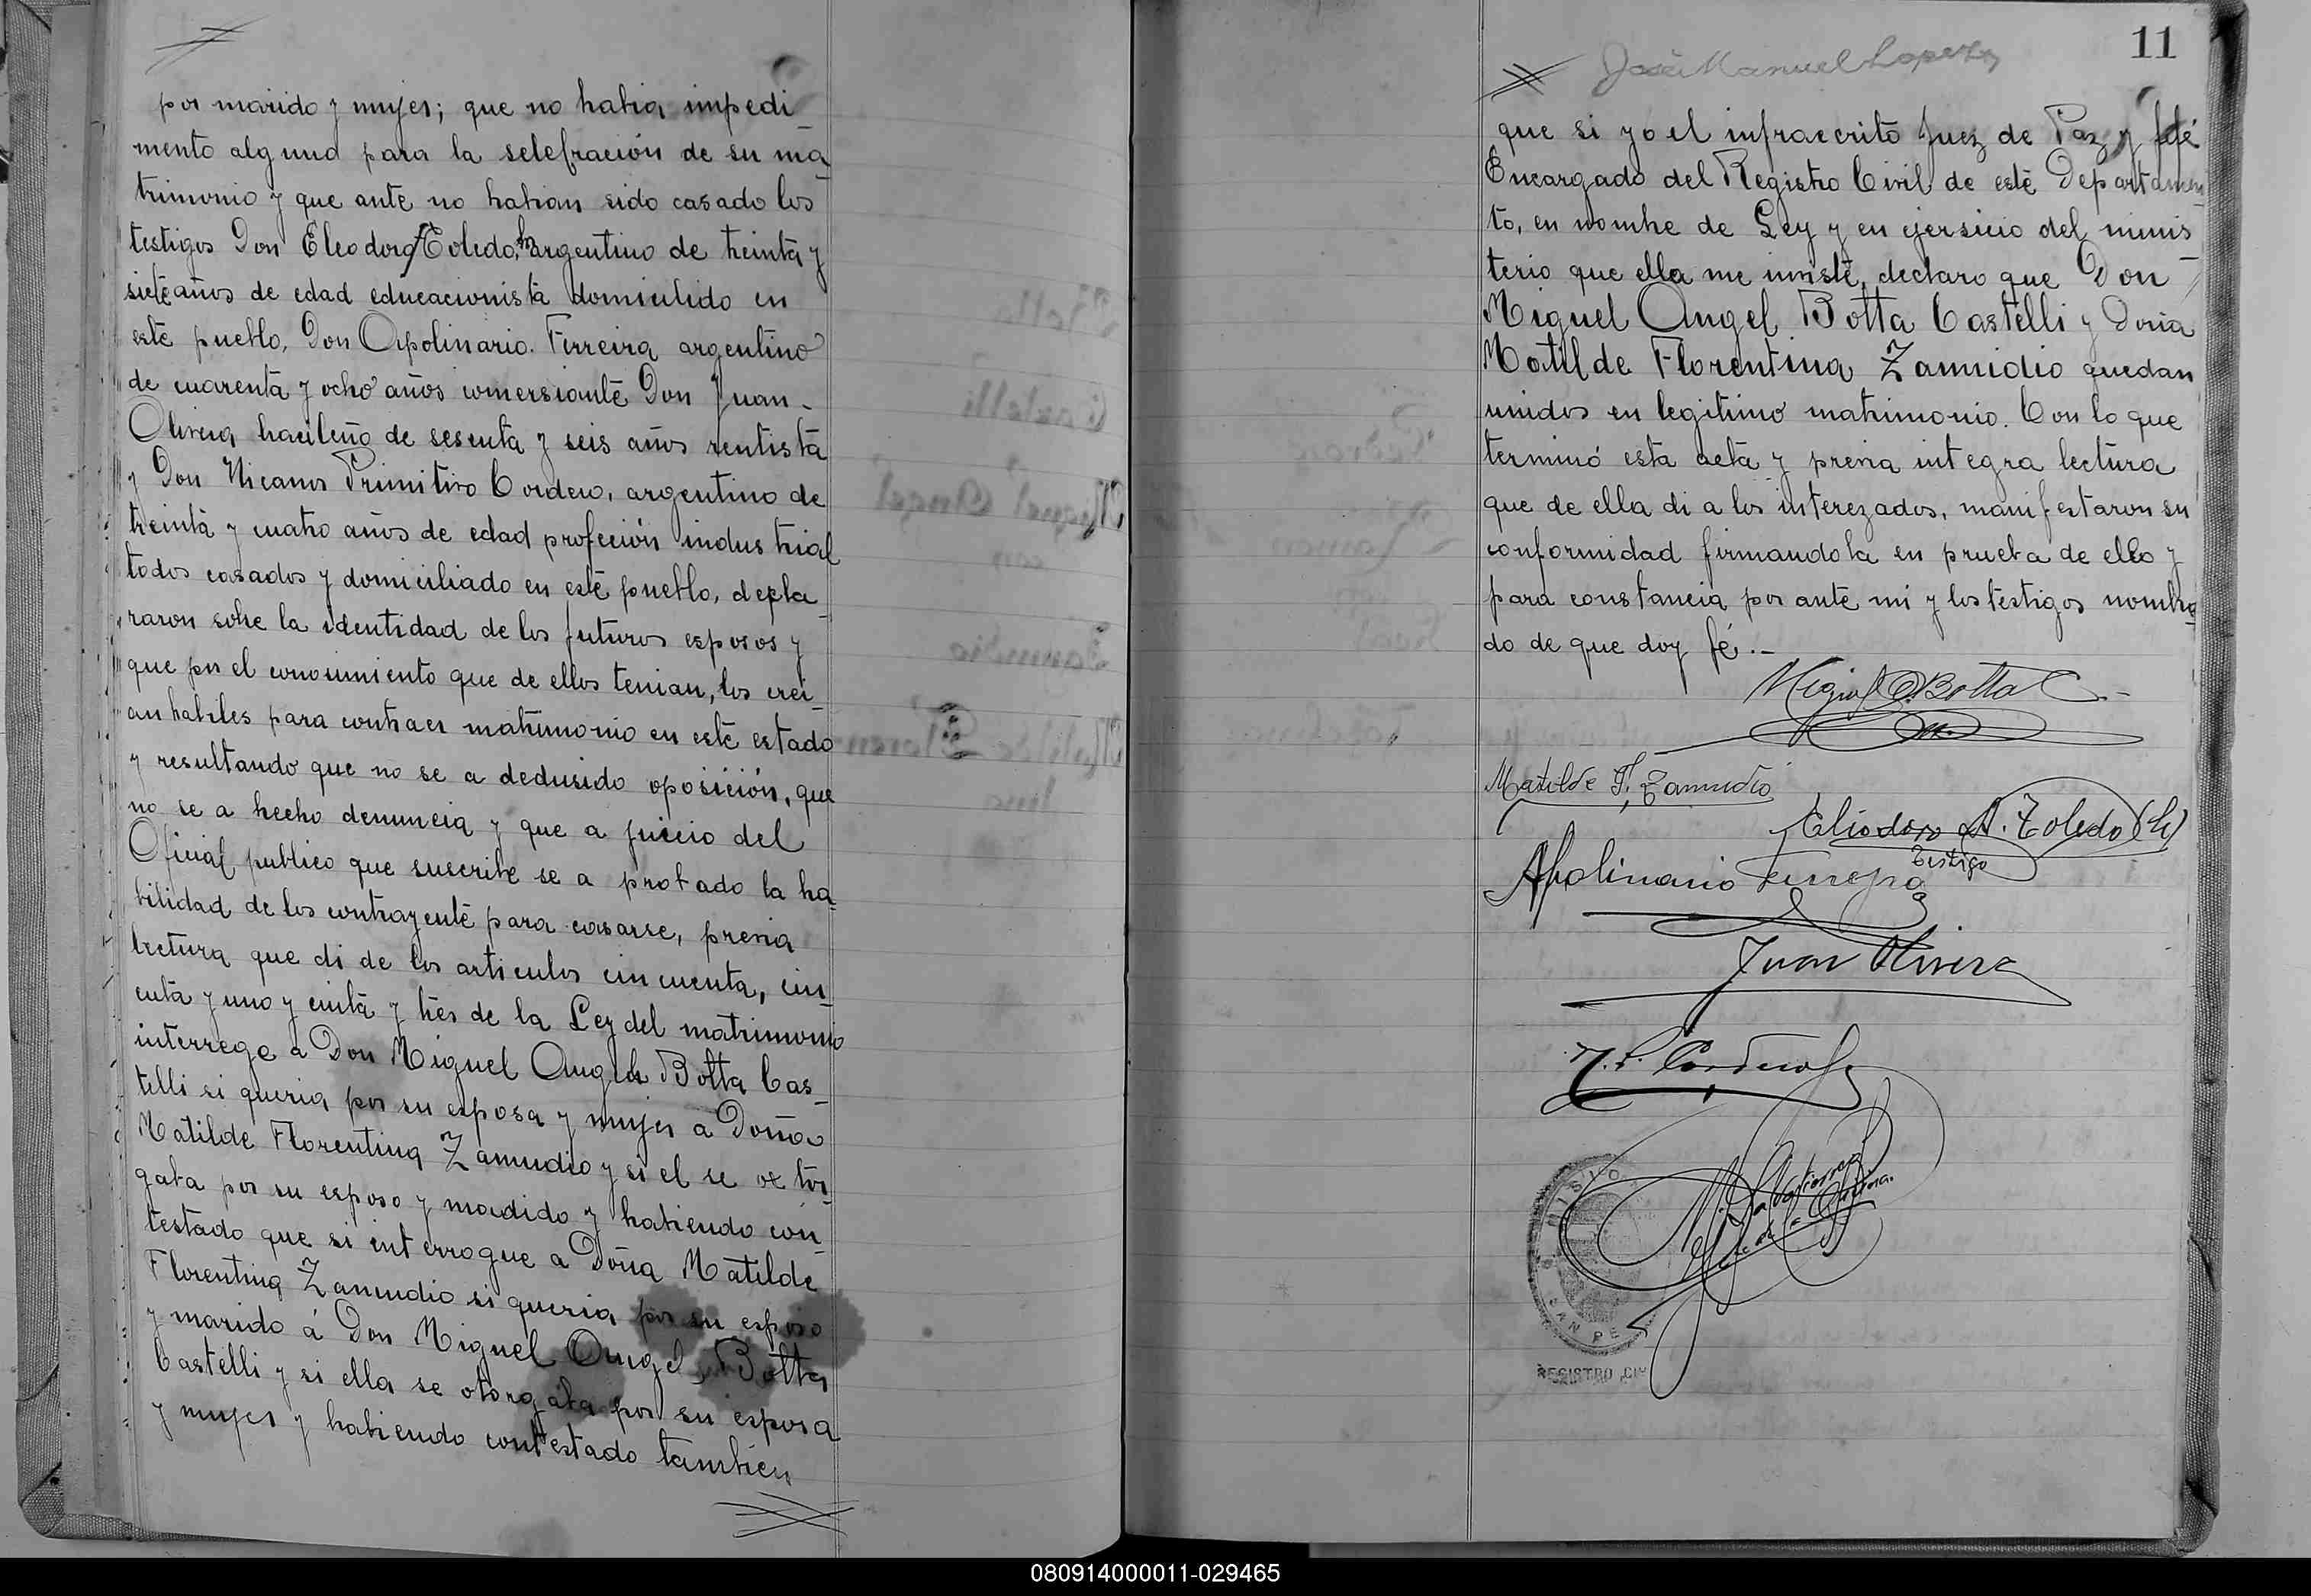 por marido y mujer; que no habia impedi_
mento alguno para la selebración de su ma_
trimonio y que ante no habian sido casado los
testigos Don Eleodoro Toledo, h argentino de treinta y
siete años de edad educacionista domiculido en
este pueblo, Don Apolinario. Ferreira argentino
de cuarenta y ocho años comersiante Don Juan_
Olivera bracileño de sesenta y seis años rentista
y Don Nicanor Primitivo Cordero, argentino de
treinta y cuatro años de edad profeción industrial
todos casados y domiciliado en este pueblo, decla_
raron sobre la identidad de los futuros esposos y
que por el conocimiento que de ellos tenian, los crei_
an habiles para contraer matrimonio en este estado
y resultando que no se a dedusido oposición, que
no se a hecho denuncia y que a juicio del
Oficial publico que suscribe se a probado la ha_
bilidad de los contrayente para casarse, previa
lectura que di de los articulos cincuenta, cin_
cuta y uno y cinta y tres de la Ley del matrimonio
interrege a Don Miguel Angel Botta Cas_
telli si queria por su esposa y mujer a Doña
Matilde Florentina Zamudio y si el se otor_
gaba por su esposo y madido y habiendo con_
testado que si interrogue a Doña Matilde
Florentina Zamudio si queria por su esposo
y marido á Don Miguel Angel Botta
Castelli y si ella se otorgaba por su esposa
y mujer y habiendo contestado tambien
11
José Manuel Lopez
que si yo el infraecrito Juez de Paz y Jefe
Encargado del Registro Civil de este Departamen_
to, en nombre de Ley y en ejersicio del minis_
terio que ella me inviste, declaro que Don
Miguel Angel Botta Castelli y Doña
Matilde Florentina Zamudio quedan
unidos en legitimo matrimonio. Con lo que
terminó esta acta y previa integra lectura
que de ella di a los interezados, manifestaron su
conformidad firmandola en prueba de ello y
para constancia por ante mi y los testigos nombra_
do de que doy fé._
Miguel A. Botta C.
Matilde F. Zamudio
Eliodoro A. Toledo (h)
Testigo
Apolinario Ferreyra
Juan Olivera
N. P. Cordero
MISIO
SAN PE
REGISTRO CIV
080914000011-029465